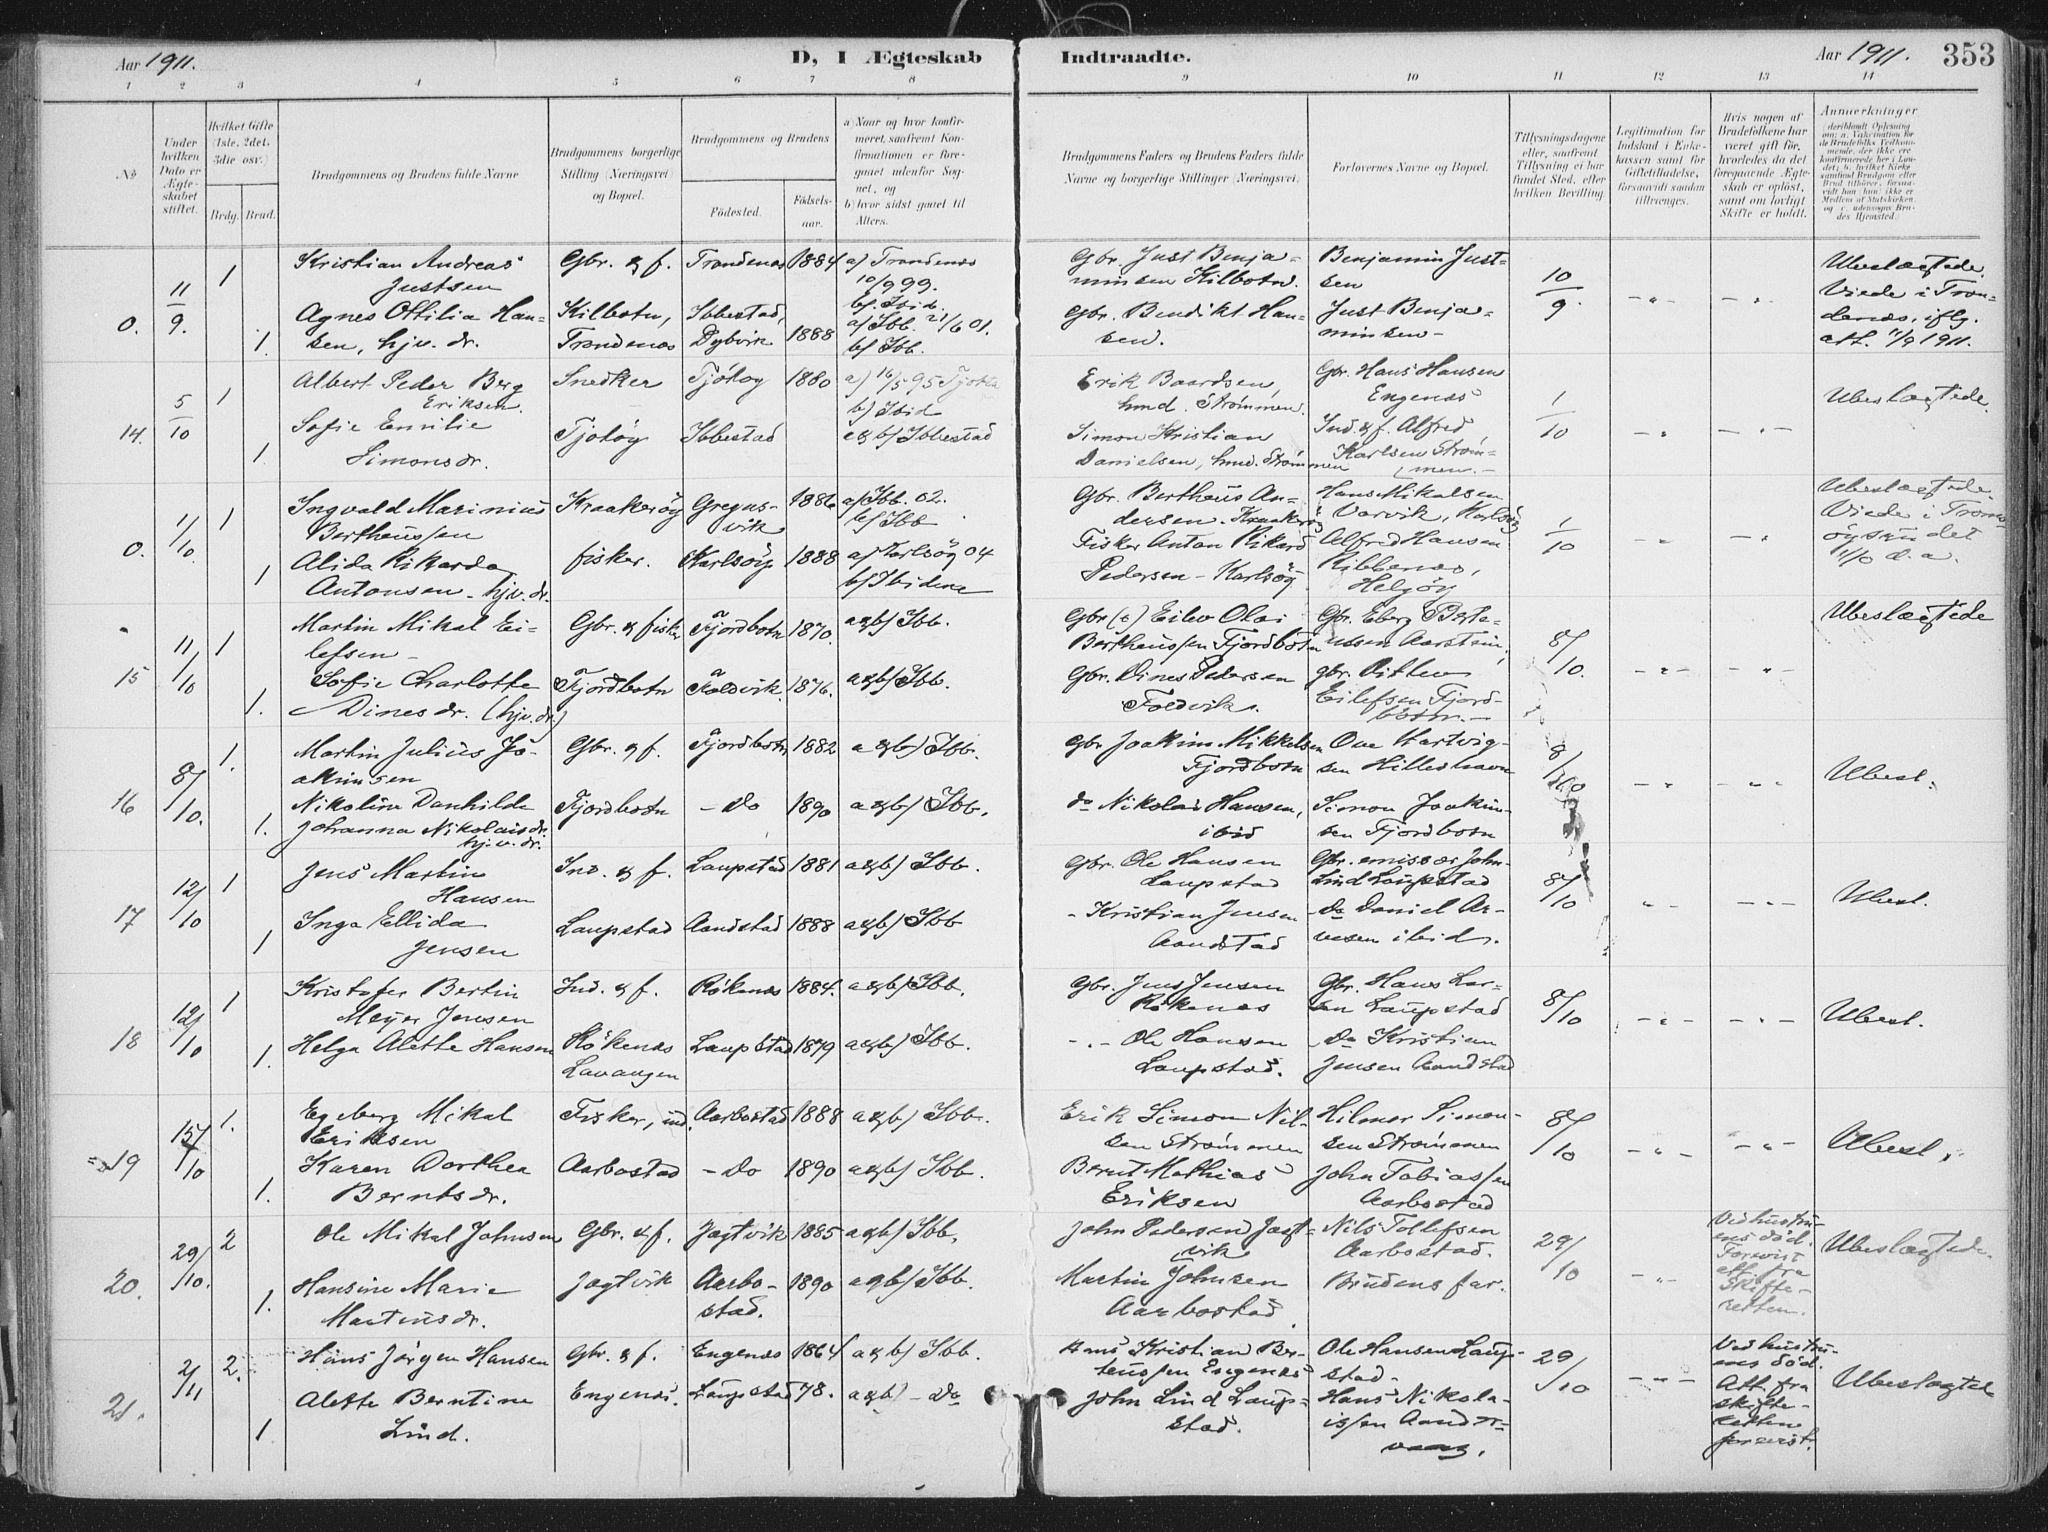 Aar 1911.
D, I Ægteskab
Indtraadte.
Aar 1911.
353
1 2 3 4 5 6 7 8 9 10 11 12 13 14
No
Under hvilken Dato er Ægteskabet stiftet.
Hvilket Gifte (1ste, 2det, 3die osv.)
Brdg. Brud.
Brudgommens og Brudens fulde Navne
Brudgommens borgerlige Stilling (Næringsvei) og Bopæl.
Brudgommens og Brudens
Fødested.
Fødselsaar.
a) Naar og hvor konfirmeret, saafremt Konfirmationen er foregaaet udenfor Sognet, og
b) hvor sidst gaaet til Alters.
Brudgommens Faders og Brudens Faders fulde Navne og borgerlige Stillinger (Næringsvei)
Forlovernes Navne og Bopæl.
Tillysningsdagene eller, saafremt Tillysning ei har fundet Sted, efter hvilken Bevilling.
Legitimation for Indskud i Enkekassen samt for Giftetilladelse, forsaavidt saadan tiltrænges.
Hvis nogen af Brudefolkene har været gift før, hvorledes da det foregaaende Ægteskab er opløst, samt om lovligt Skifte er holdt.
Anmærkninger
0. 11/9. 1
Kristian Andreas Justsen
Gbr. & f. Trondenæs 1884 a) Trondenæs 10/9 99. b) Ibid.
Gbr. Just Benjaminsen Kilbotn. Benjamin Justsen
10/9. -"- -"-
Ubeslægtede. Viede i Trondenæs, iflg. att. 11/9 1911.
1. Agnes Ottilia Hansen, hjv. dr.
Kilbotn, Trondenæs Ibbestad, Dybvik 1888 a) Ibb. 21/6 01. b) Ibb.
Gbr. Bendikt Hansen. Just Benjaminsen
14. 5/10 1
Albert Peder Berg Eriksen.
Snedker Tjötöy 1880 a) 16/5 95 Tjøtta b) Ibid
Erik Baardsen, hmd. Strømmen. Gbr. Hans Hansen Engenæs
1/10 -"- -"- Ubeslægtede.
1. Sofie Emilie Simonsdr.
Tjotöy Ibbestad a & b) Ibbestad
Simon Kristian Danielsen, hmd. Strømmen Ind. & f. Alfred Karlsen Strømmen.
0. 11/10. 1
Ingvald Marinius Bertheussen
Kraakeröy Gregusvik 1886 a) Ibb. 02. b) Ibb
Gbr. Bertheus Andersen. Kraakeröy Hans Mikalsen Varvik, Karlsöy
1/10 -"- -"-
Ubeslægtede. Viede i Tromsöysundet 11/10 d. a.
1 Alida Rikarda Antonsen, hjv. dr.
fisker. Karlsöy 1888 a) Karlsöy 04 b) Ibidem
Fisker Anton Rikard Pedersen - Karlsöy Alfred Hansen Ribbenæs, Helgöy
15 11/10 1
Martin Mikal Eilefsen
Gbr. & fisker Fjordbotn 1870. a & b) Ibb.
Gbr (e) Eilev Olai Bertheussen Fjordbotn Gbr. Eberg
8/10. -"- -"- Ubeslægtede
1. Sofie Charlotte Dinesdr. (hjv. dr.)
Fjordbotn Foldvik 1876. a & b) Ibb.
Gbr. Dines Pedersen Foldvik. gbr. Eilefsen Fjordbotn.
16 8/10. 1.
Martin Julius Joakimsen
Gbr. & f. Fjordbotn 1882 a & b) Ibb.
Gbr Joakim Mikkelsen Fjordbotn Ove Hartvigsen Hilleshavn
8/10 -"- -"- Ubesl.
1. Nikoline Danhilde Johanna Nikolaisdr. hj. v. dr.
Fjordbotn - Do 1890 a & b) Ibb.
do Nikolai Hansen, ibid Simon Joakimsen Fjordbotn
17 12/10 1
Jens Martin Hansen
Ind. & f. Laupstad 1881 a & b) Ibb.
Gbr. Ole Hansen Laupstad Gbr. emissær John Lind Laupstad
8/10 -"- -"- Ubesl.
1 Inga Ellida Jensen
Laupstad Aandstad 1888 a & b) Ibb
- Kristian Jensen Aandstad Do Daniel Arnesen ibid.
18 12/10 1
Kristofer Bertin Meyer Jensen
Ind. & f. Rökenæs 1884. a & b) Ibb.
Gbr. Jens Jensen Rökenæs Gbr. Hans Larsen Laupstad
8/10 -"- -"- Ubesl.
1. Helga Alette Hansen
Rökenæs Lavangen Laupstad 1879 a & b) Ibb.
-"- Ole Hansen Laupstad. Do Kristian Jensen Aandstad
19 15/10 1.
Egeberg Mikal Eriksen
Fisker, ind. Aarbostad 1888 a & b) Ibb.
Erik Simon Nilsen Strømmen Hilmar Simonsen Strømmen
8/10 -"- -"- Ubesl.
1. Karen Dorthea Berntsdr.
Aarbostad - Do 1890 a & b) Ibb.
Bernt Mathias Eriksen John Tobiassen Aarbostad
20. 29/10. 2
Ole Mikal Johnsen
Gbr. & f. Jagtvik 1885 a & b) Ibb.
John Pedersen Jagtvik Nils Tollefsen Aarbostad.
29/10 -"-
Ved hustruens död. Forevist att. fra Skifteretten.
Ubeslægtede.
1. Hansine Marie Martinsdr.
Jagtvik Aarbostad. 1890 a & b) Ibb.
Martin Johnsen Aarbostad Brudens far.
21. 2/11 2.
Hans Jørgen Hansen
Gbr. & f. Engenæs 1864 a & b) Ibb.
Hans Kristian Berteussen Engenæs Ole Hansen Laupstad.
29/10 -"-
Ved hustruens död. Att. fra skifteretten forevist.
Ubeslægtede
1 Alette Berntine Lind.
Engenæs. Laupstad 78. a & b) - Do
John Lind Laupstad. Hans Nikolaissen